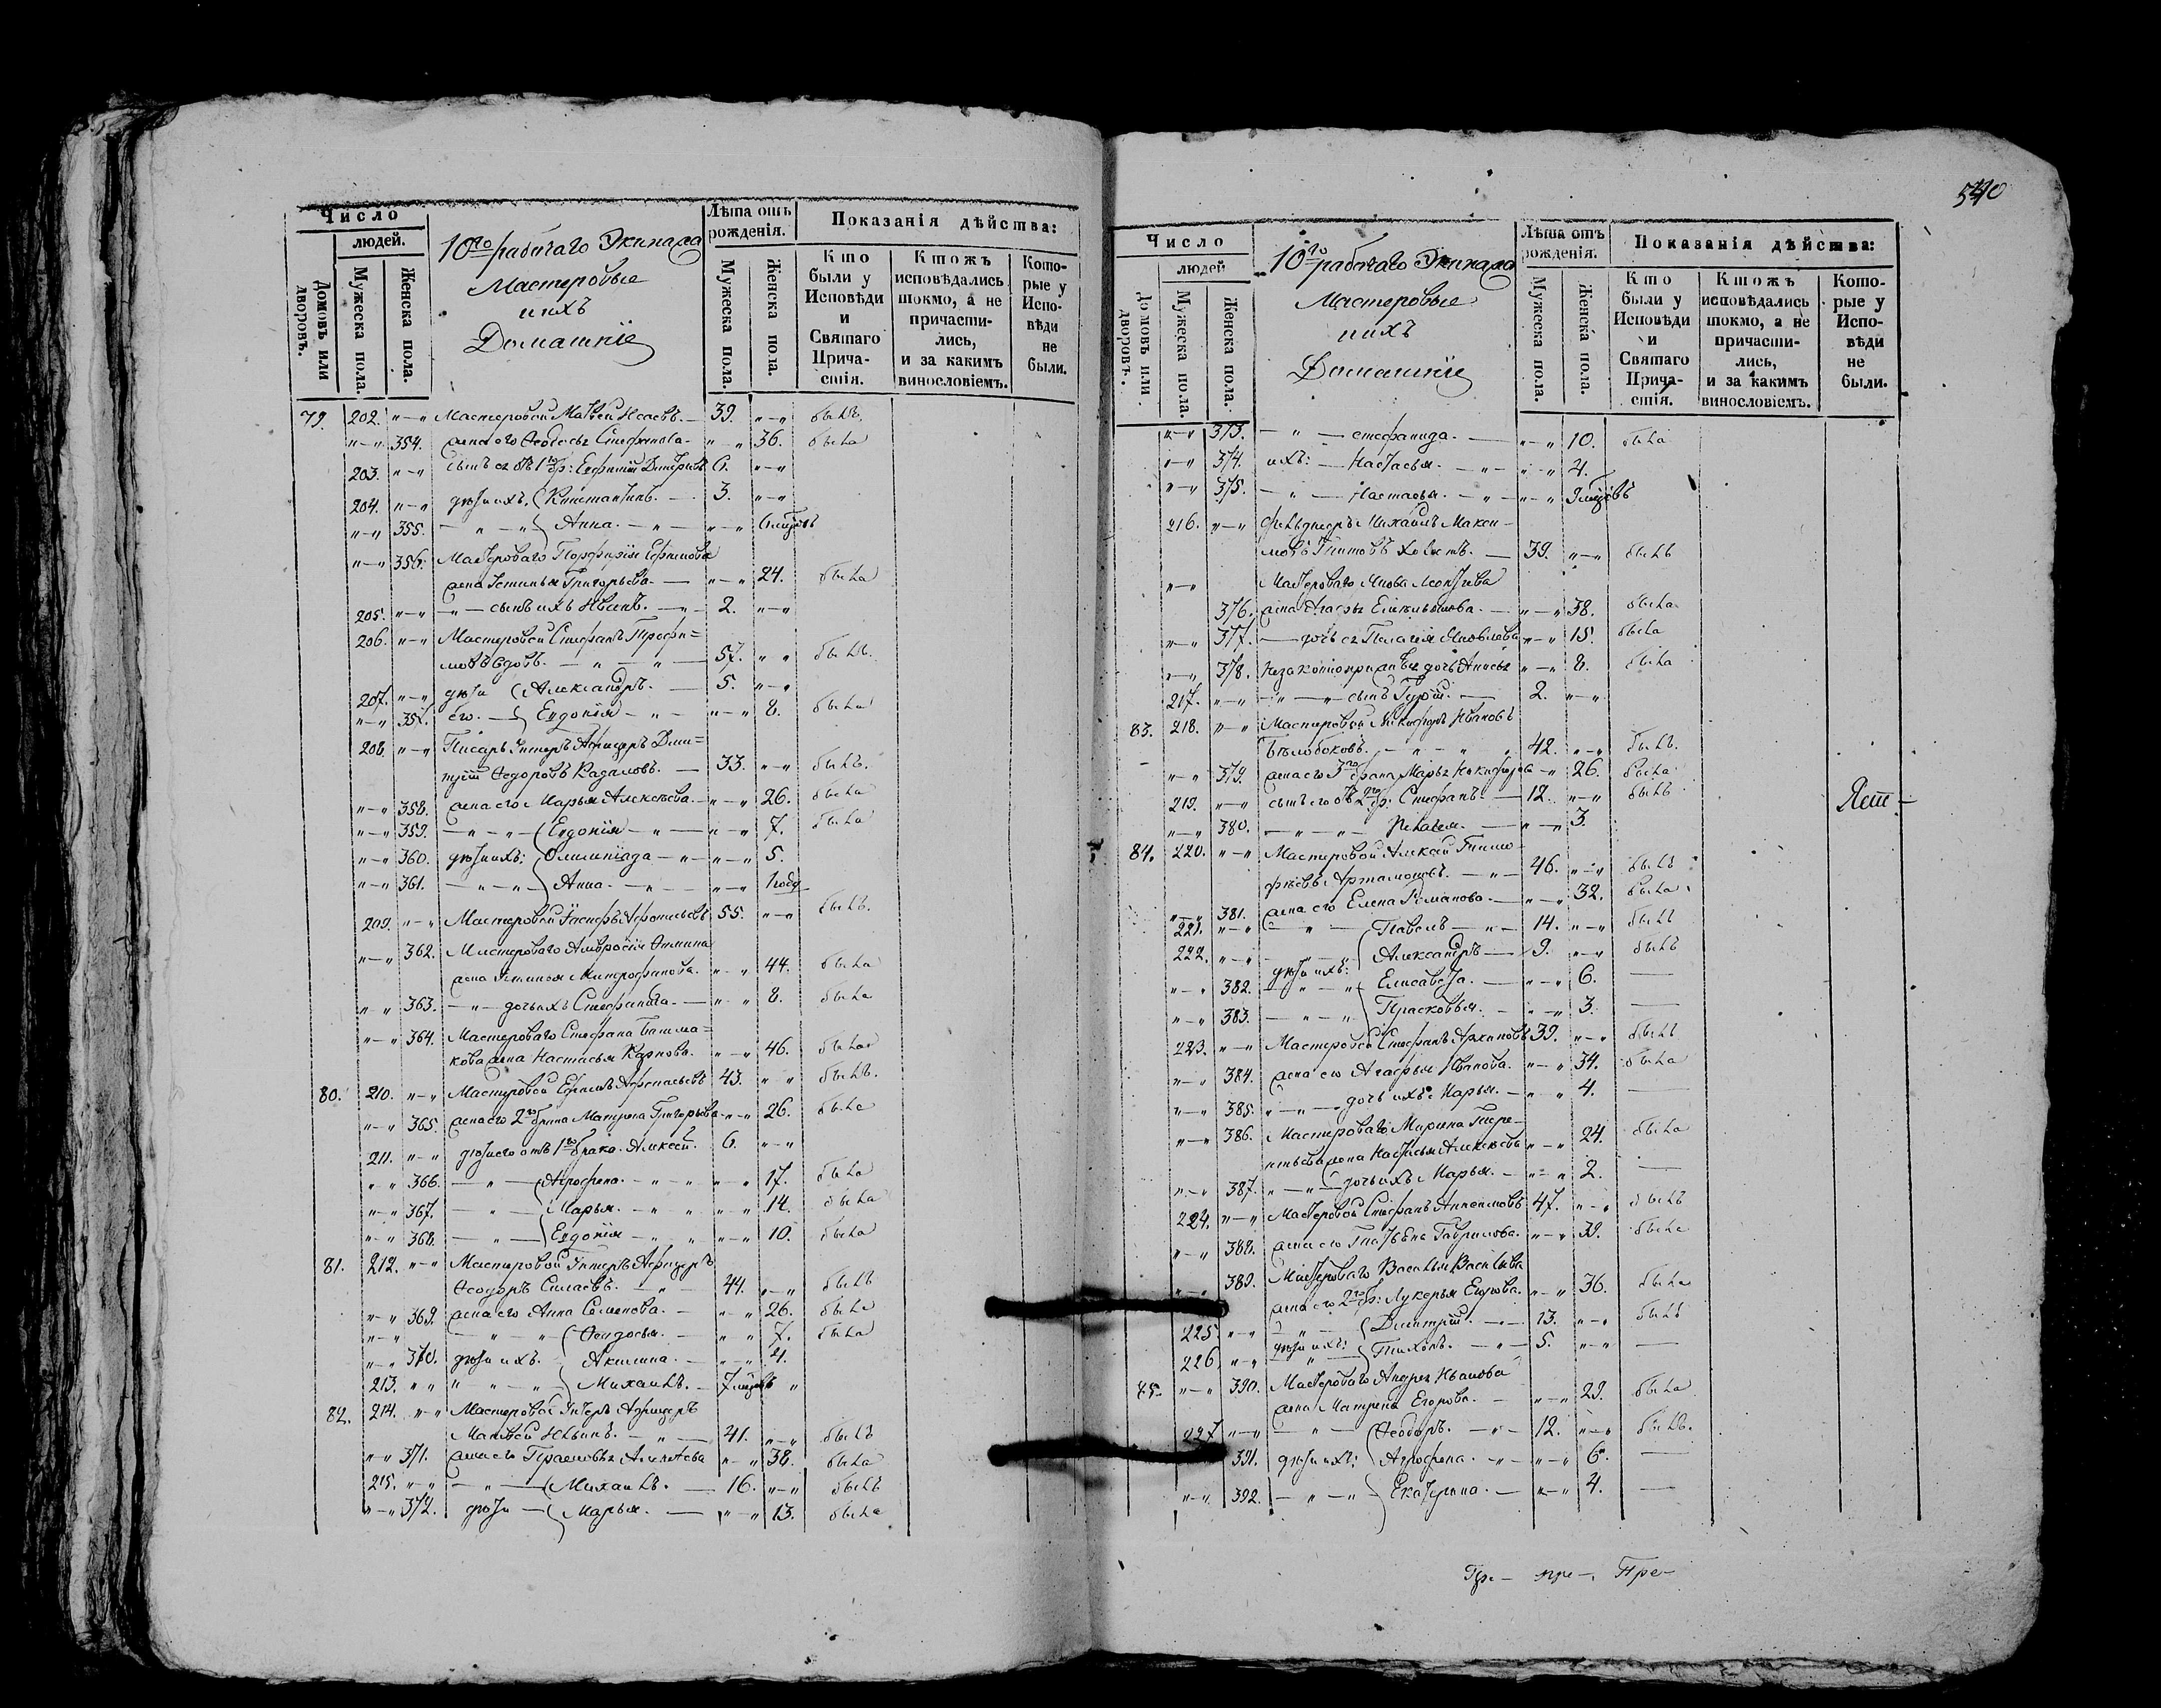 Число
людей.
Домовъ или дворовъ.
Мужеска пола.
Женска пола.
10го рабочаго Экипажа
Мастеровые
и ихъ
Домашніе
Лѣта отъ рожденія.
Мужеска пола.
Женска пола.
Показанія дѣйства:
Кто были у Исповѣди и Святаго Причастія.
Ктожъ исповѣдались токмо, а не причастились, и за какимъ винословіемъ.
Которые у Исповѣди не были.
79. 202. Мастеровой Матвѣй Исаевъ. 39. былъ
354. жена его Ѳедосья Стефанова 36. была
203. сынъ ея отъ 1го бр: 6.
204. дѣти ихъ. Константинъ. 3.
355. Анна. 6 мѣсяцовъ
356. Мастероваго Порфирія Ефимова
жена Устинья Григорьева 24. была
205. сынъ ихъ Иванъ. 2.
206. Мастеровой Стефанъ Трофи=
мовъ вдовъ. 57. былъ.
207. дѣти Александръ. 5.
357. его. Евдокія 8. была
208. Писарь Унтеръ Афицеръ Дми=
трій Ѳедоровъ 33. былъ.
358. жена его Марья Алексѣева. 26. была
359. Евдокія 7. была
360. дѣти ихъ: Олимпіада 5.
361. Анна. 1 году
209. Мастеровой Афонасьевъ 55. былъ.
362. Мастероваго Амвросія
жена Митрофанова. 44. была
363. дочь ихъ Стефанида. 8. была
364. Мастероваго Стефана Башма=
кова жена Настасья Карпова. 46. была
80. 210. Мастеровой Ефимъ Афонасьевъ 43. былъ.
365. жена его 2го брака Матрена Григорьева 26. была
211. дѣти его отъ 1го брака. Алексѣй. 6.
366. Агрофена. 17. была
367. Марья. 14. была
368. Евдокія 10. была
81. 212. Мастеровой Унтеръ Афицеръ
Ѳеодоръ 44. былъ
369. жена его Анна Семенова. 26. была
Ѳеодосья. 7. была
370. дѣти ихъ. Акилина. 4.
213. Михаилъ. 7 мѣсяцовъ
82. 214. Мастеровой Унтеръ Афицеръ
Матвѣй Ильинъ. 41. былъ
371. жена его Прасковья 38. была
215. Михаилъ. 16. былъ
372. дѣти Марья. 13. была
540
Число
людей
Домовъ или дворовъ.
Мужеска пола.
Женска пола.
10го рабочаго Экипажа
Мастеровые
и ихъ
Домашніе
Лѣта отъ рожденія.
Мужеска пола.
Женска пола.
Показанія дѣйства:
Кто были у Исповѣди и Святаго Причастія.
Ктожъ исповѣдались токмо, а не причастились, и за какимъ винословіемъ.
Которые у Исповѣди не были.
373. Стефанида. 10. была
374. ихъ: Настасья. 4.
375. Настасья.
216. Фельдшеръ Михаилъ Макси-
мовъ Титовъ холостъ. 39. былъ
Мастероваго Якова Леонтіева
376. жена Агафья Емельянова. 38. была
377. дочь ея Пелагія Яковлева 15. была
378. незаконноприжитыя дочь 8. была
217. сынъ 2.
83. 218. Мастеровой Никифоръ Ивановъ
Бѣлобоковъ. 42. былъ.
379. жена его 3го брака Марья 26. была
219. сынъ его отъ 2го бр: Стефанъ 12. былъ
380. Пелагея. 3.
84. 220. Мастеровой Алексѣй Тимо-
фѣевъ Артамоновъ. 46. былъ
381. жена его Елена Романова. 32. была
221. Павелъ 14. былъ
222. Александръ 9. былъ
382. дѣти ихъ: Елисавета. 6.
383. Прасковья. 3.
223. Мастеровой Стефанъ Архиповъ 39. былъ
384. жена его Агафья Иванова. 34. была
385. дочь ихъ Марья. 4.
386. Мастероваго Терен-
тьева жена Алексѣева 24. была
387. дочь ихъ Марья. 2.
224. Мастеровой Стефанъ 47. былъ
388. жена его Татьяна Гаврилова. 39. была
389. Мастероваго Василья Васильева
жена его 2го бр: Лукерья Егорова. 36. была
225. Дмитрій. 13. былъ
226. дѣти ихъ: Тихонъ. 5.
85. 390. Мастероваго Андрея Иванова
жена Матрена Егорова. 29. была
227 Ѳеодоръ. 12. былъ.
391. дѣти ихъ: Агрофена. 6.
392. Екатерина. 4.